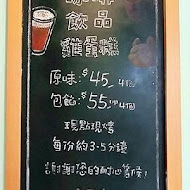 飲品
雞蛋糕
原味:$45/4個
包餡:$55/4個
現點現烤
每份約3-5分鐘
謝謝您的耐心等候!